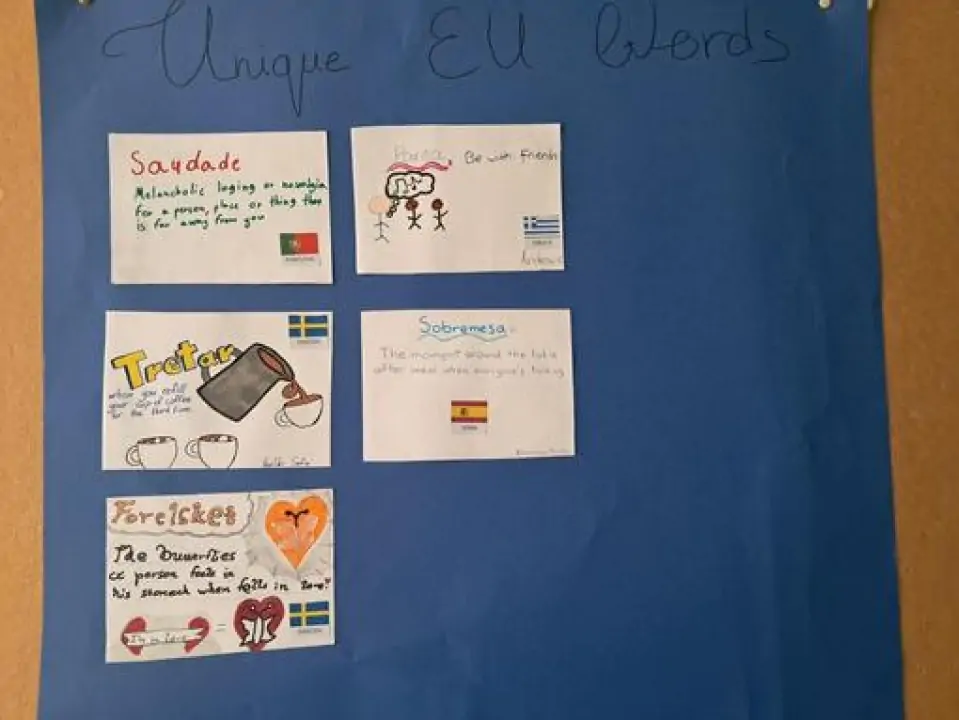 Unique EU Words
Saudade
Melancholic loging or nostalgia
for a person, place or thing that
is far away from you
PORTUGAL
Parea, Be with friends
GREECE
SWEDEN
Tretar
when you refill
your cup of coffee
for the third time
Sobremesa
The moment around the table
after meal when everyone's talking
SPAIN
Forelsket
The
a person feels in
his stomach when falls in love
=
SWEDEN